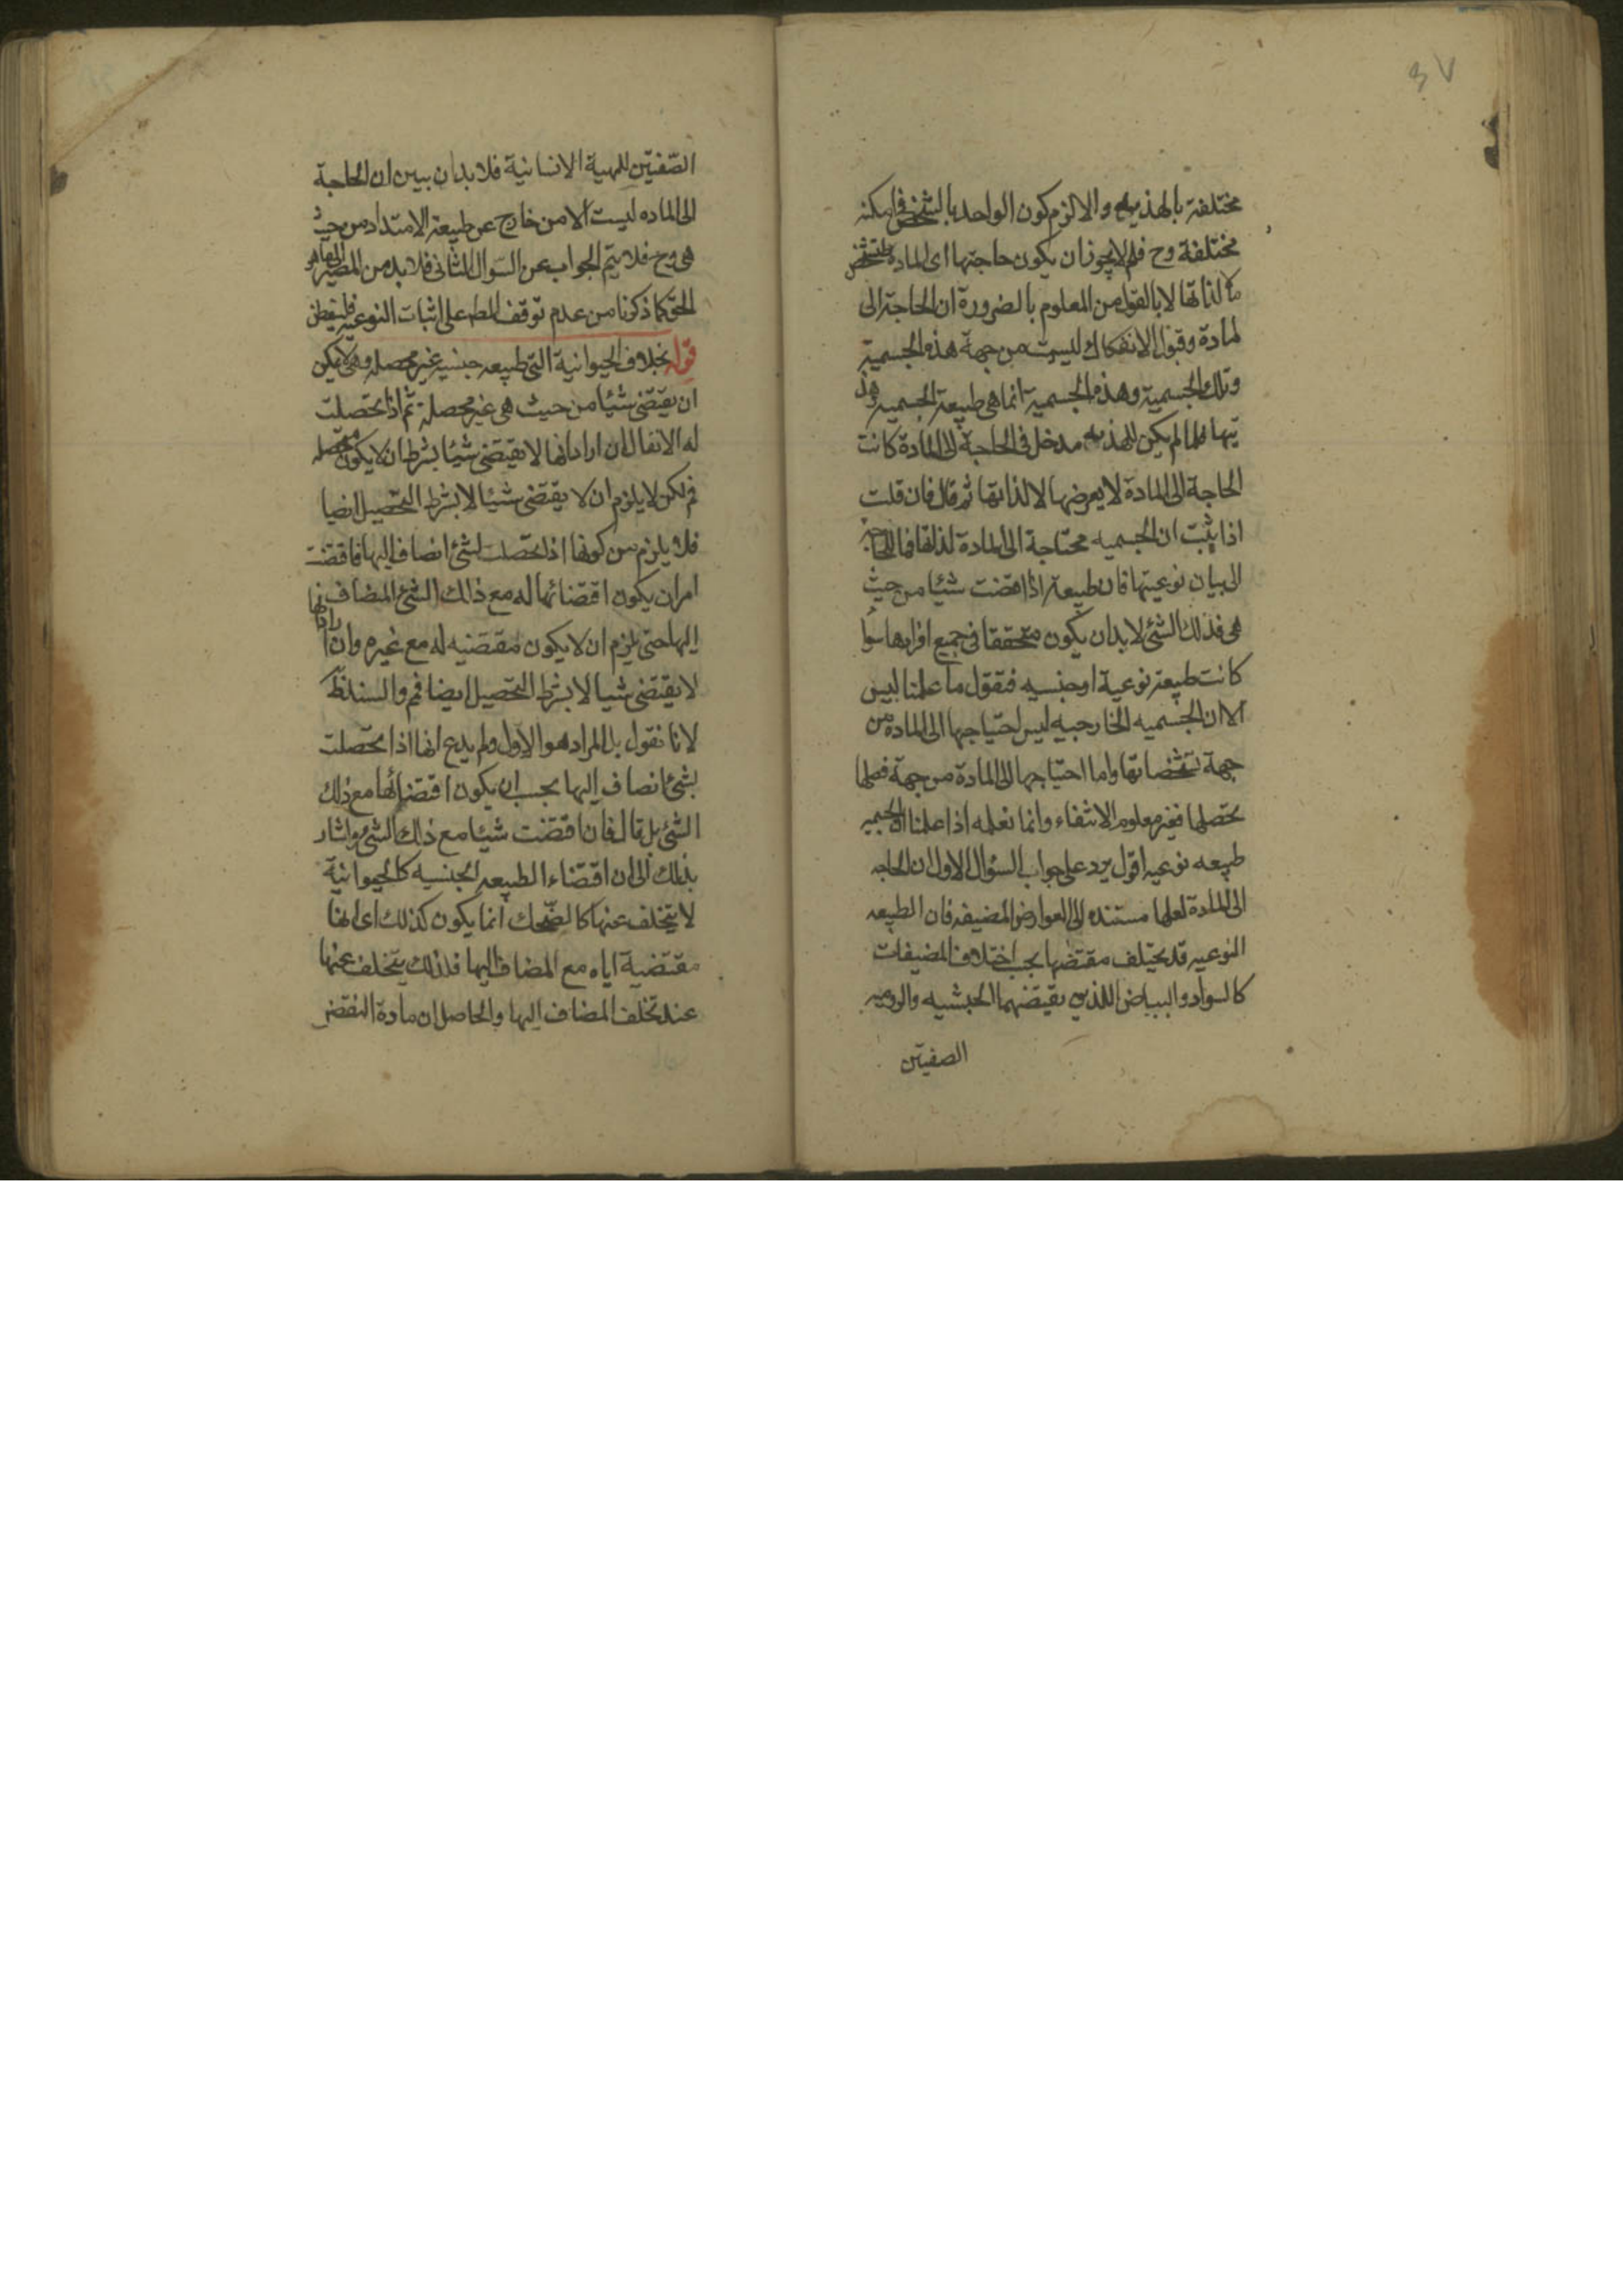 ٤٧
مختلفة بالهذيه والا لزم كون الواحد بالشخص في امكنه
مختلفة وح فلم لا يجوز ان يكون حاجتها اى المادة
لذاتها لا بالقول من المعلوم بالضرورة ان الحاجة الى
لمادة وقبول الانفكاك ليست من جهة هذه الجسمية
وتلك الجسمية وهذه الجسمية انما هى طبيعة الجسميه وهذ
يتها فلما لم يكن للهذيه مدخل فى الحاجة الى المادة كانت
الحاجة الى المادة لا يعرضها الا لذاتها ثم قال فان قلت
اذا يثبت ان الجسميه محتاجة الى المادة لذاتها فما الحاجة
الى بيان نوعيتها فان طبيعة اذا اقتضت شيئا من حيث
هى فذلك الشئ لا بد ان يكون متحققا فى جميع افرادها سوا
كانت طبيعة نوعية او جنسيه فنقول ما علمنا ليس
الا ان الجسميه الخارجيه ليس احتياجها الى الماده من
جهة تشخصاتها واما احتياجها الى المادة من جهة فصلها
يحصلها فغير معلوم الانتفاء وانما نعلمه اذا علمنا ان الجسميه
طبيعه نوعيه اقول يرد على جواب السؤال الاول ان الحاجه
الى المادة لعلها مستنده الى العوارض المضيفه فان الطبيعه
النوعيه قد يختلف مقتضيها بحسب اختلاف المضيفات
كالسواد والبياض اللذين يقتضيهما الحبشيه والروميه
الصفيتن
الصفيتن للمهية الانسانية فلا بد ان يبين ان الحاجة
الى الماده ليست الا من خارج عن طبيعة الامتداد من حيث
هى وح فلا يتم الجواب عن السؤال الثانى فلا بد من المصير الى ما هو
الحق كما ذكرنا من عدم توقف المط على اثبات النوعيه فليتفطن
قوله بخلاف الحيوانية التى طبيعه جنسيه غير محصله وهى لا يمكن
ان يقتضى شيئا من حيث هى غير محصلة ثم اذا تحصلت
له الا نقال ان اراد انها لا يقتضى شيئا بشرط ان لا يكون محصله
فم لكن لا يلزم ان لا يقتضى شيئا الا بشرط التحصيل ايضا
فلا يلزم من كونها اذا تحصلت لشئ انضاف اليها فاقتضت
امرا ن يكون اقتضائها له مع ذالك الشئ المضاف
اليها حتى يلزم ان لا يكون مقتضيه له مع غيره وان اراد انها
لا يقتضى شيا الا بشرط التحصيل ايضا فم والسند ظ
لانا نقول بل المراد هو الاول ولم يدع انها اذا تحصلت
بشئ انضاف اليها يجب ان يكون اقتضائها مع ذلك
الشئ بل قال فان اقتضت شيئا مع ذالك الشئ واشار
بذلك الى ان اقتضاء الطبيعه الجنسيه كالحيوانية
لا يتخلف عنها كالضحك انما يكون كذلك اى انها
مقتضية اياه مع المضاف اليها فلذلك يتخلف عنها
عند تخلف المضاف اليها والحاصل ان مادة النقض